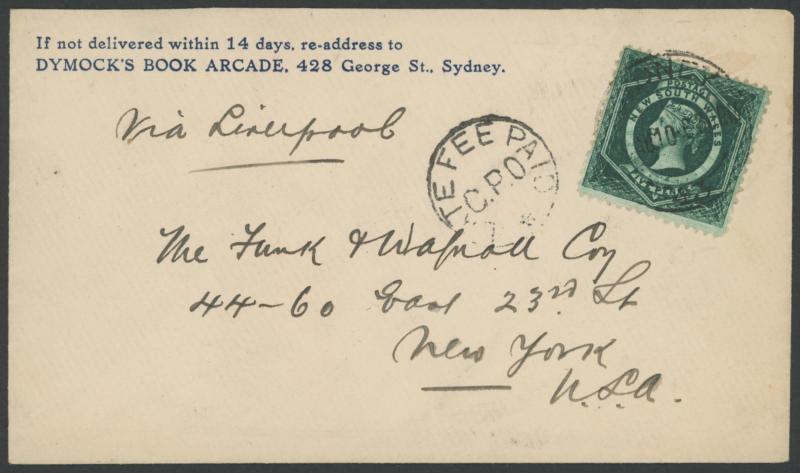 If not delivered within 14 days, re-address to
DYMOCK'S BOOK ARCADE, 428 George St., Sydney.
POSTAGE
NEW SOUTH WALES
FIVE PENCE
Via Liverpool
TE FEE PAID
G.P.O
The Funk & Wagnall Coy
44-60 East 23rd St
New York
U.S.A.